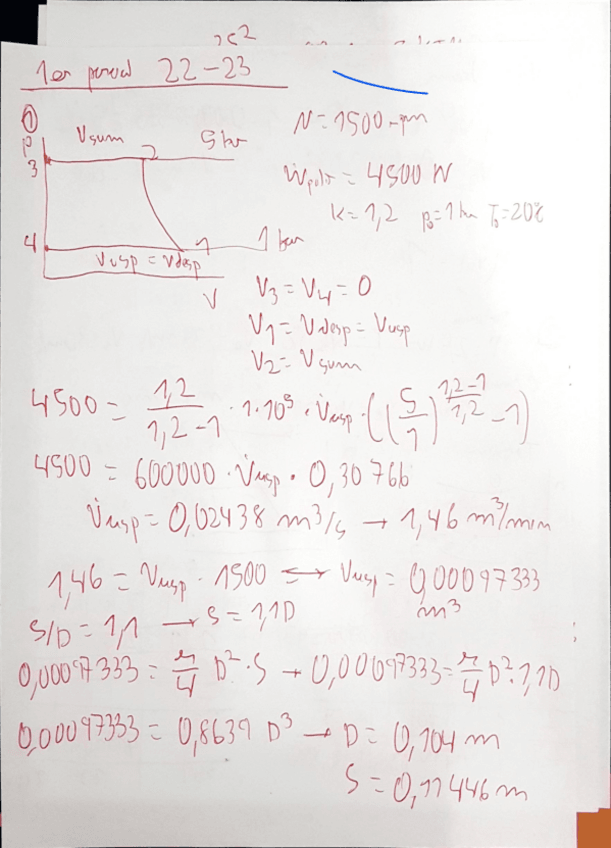 1er parcial 22-23
①
P
Vsum
2
5 bar
N = 1500 rpm
3
Ẇpolit = 4500 W
K = 1,2 p₀ = 1 bar T₀ = 20°C
4
1
1 bar
Vasp = Vdesp
V
V₃ = V₄ = 0
V₁ = Vdesp = Vasp
V₂ = Vsum
4500 = 1,2/(1,2-1) · 1·10⁵ · V̇asp · ((5/1)^((1,2-1)/1,2) - 1)
4500 = 600000 · V̇asp · 0,30766
V̇asp = 0,02438 m³/s → 1,46 m³/min
1,46 = Vasp · 1500 ⟺ Vasp = 0,00097333
m³
S/D = 1,1 → S = 1,1D
0,00097333 = π/4 D² · S → 0,00097333 = π/4 D² · 1,1D
0,00097333 = 0,8639 D³ → D = 0,104 m
S = 0,11446 m